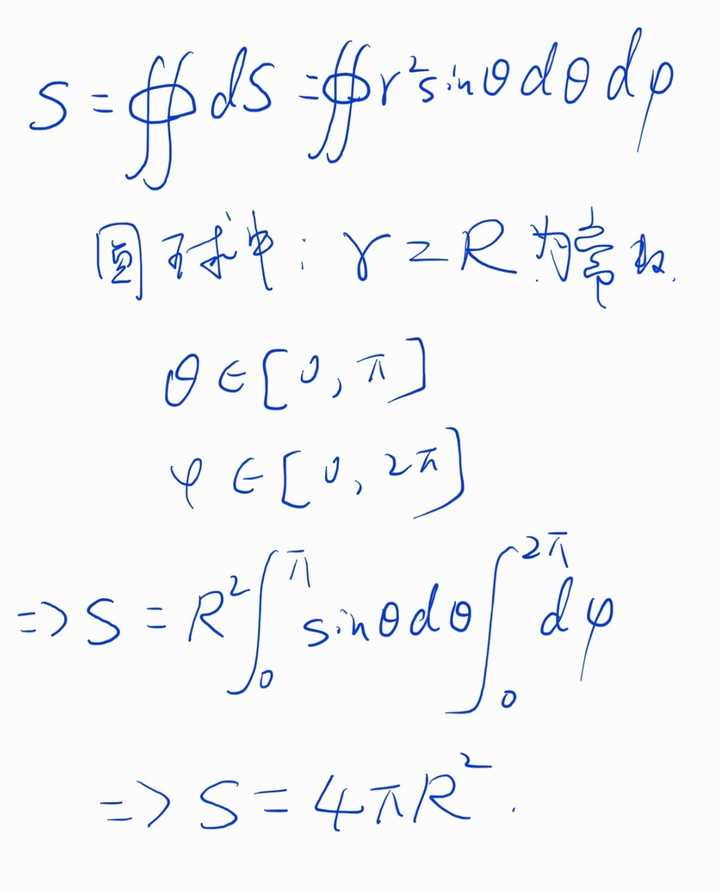 S = ∯ dS = ∯ r² sinθ dθ dφ
圆球中: r = R 为常数.
θ ∈ [0, π]
φ ∈ [0, 2π]
=> S = R² ∫₀^π sinθ dθ ∫₀^2π dφ
=> S = 4πR².